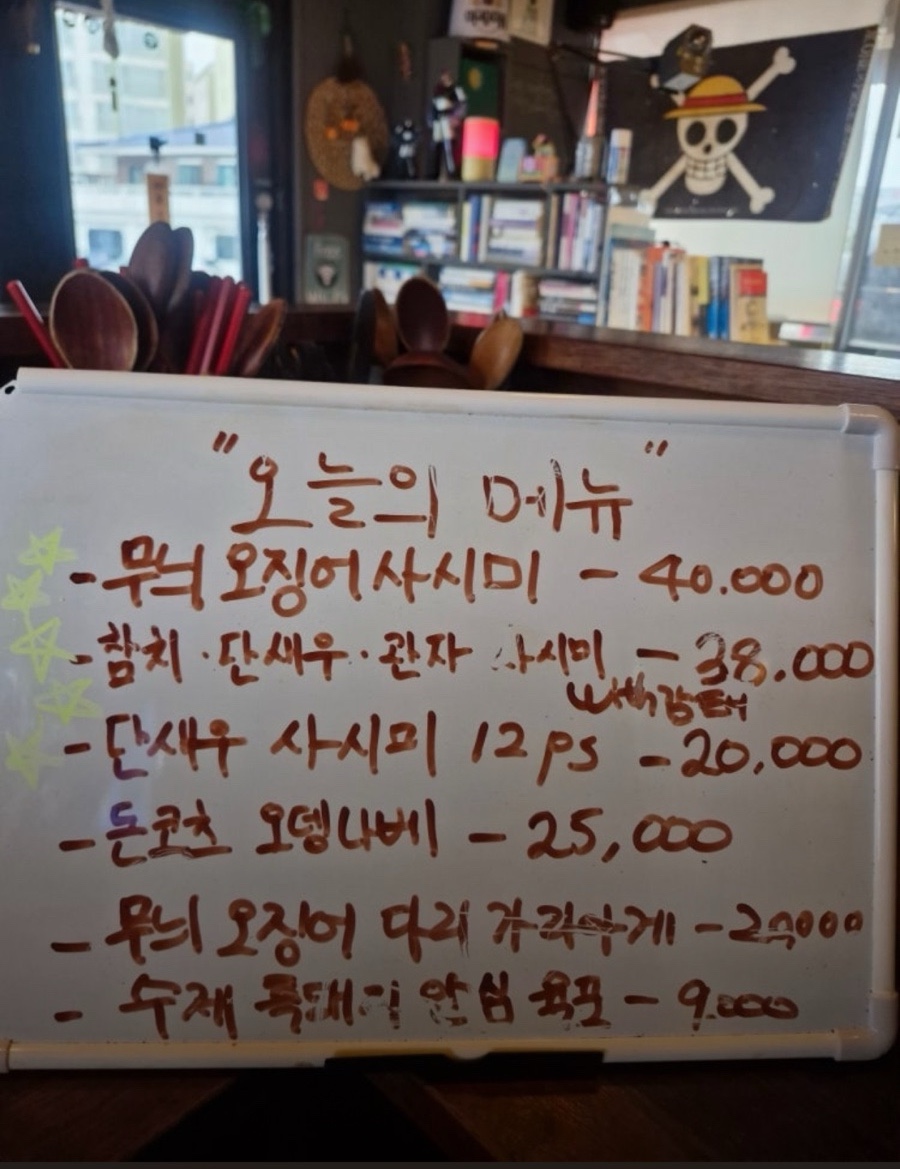 "오늘의 메뉴"
- 무늬 오징어 사시미 - 40.000
- 참치·단새우·관자 사시미 - 38.000
- 단새우 사시미 12ps - 20,000
- 돈코츠 오뎅나베 - 25,000
- 무늬 오징어 다리 가라아게 - 20000
- 수제 흑돼지 안심 육포 - 9.000